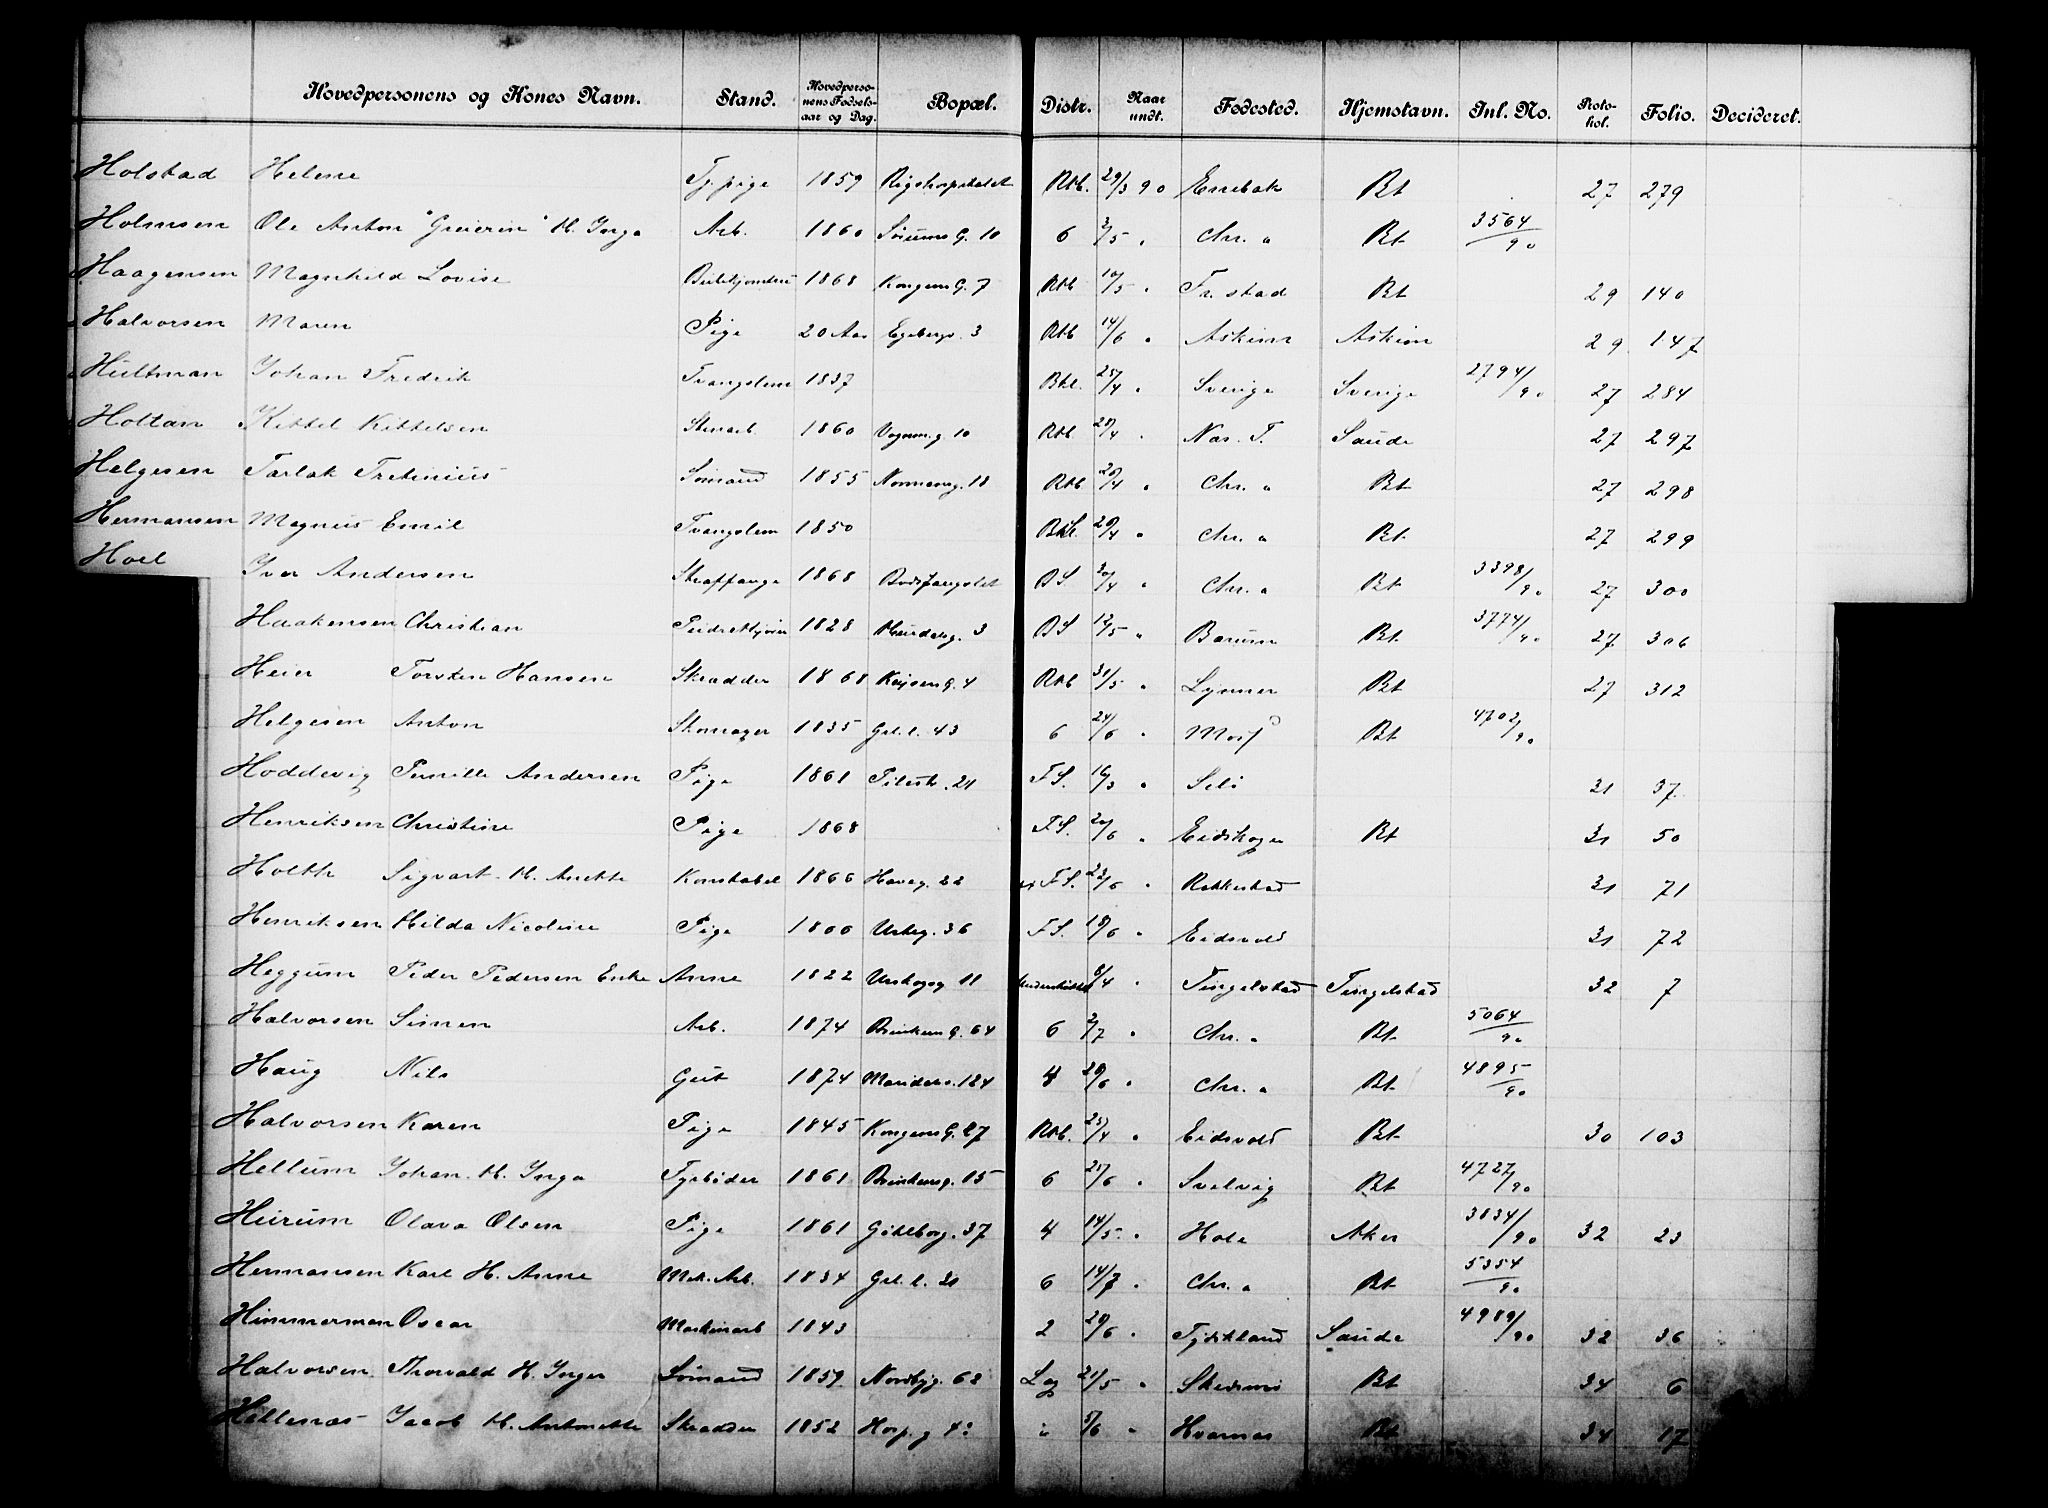 Hovedpersonens og Kones Navn. Stand. Hovedpersonens Fødselsaar og Dag. Bopæl. Distr. Naar undt. Fødested. Hjemstavn. Inl. No. Protokol. Folio. Decideret.
Holstad Helene Tj. pige 1859 Rigshospitalet Rtb. 29/3 90 Enebak Bt 27 279
Holmsen Ole Anton H. Inga Arb. 1860 G. 10 6 2/5 " Chr. a Bt 3564/90
Haagensen Magnhild Lovise 1868 Kongens G. 7 Rtb 10/5 " Fr. stad Bt 29 140
Halvorsen Maren Pige 20 Aar Egebergs. 3 Rtb 14/6 " Askim Askim 29 147
Hultman Johan Fredrik Tvangslem 1837 25/4 " Sverige Sverige 2794/90 27 284
Holtan Kittel Kittelsen Stenarb. 1860 Vognm.g. 10 Rtb 28/4 " Næs. T. Saude 27 297
Helgesen Tarlak Sømand 1855 Normannsg. 18 Rtb 26/4 " Chr. a Bt 27 298
Hermansen Magnus Emil Tvangslem 1850 20/4 " Chr. a Bt 27 299
Hoel Iver Andersen Straffange 1868 Bodsfængslet BS. 30/4 " Chr. a Bt 3398/90 27 300
Haakensen Christian 1828 Heirdalsg. 3 BS 12/5 " Bærum Bt 3774/90 27 306
Heier Torsten Hansen Skrædder 1868 Keysers G. 4 Rtb 31/5 " Lynner Bt 27 312
Helgesen Anton Skomager 1835 Grl. l. 43 6 24/6 " Moss Bt 4702/90
Hoddevig Pernille Andersen Pige 1861 Pilestr. 21 FS. 16/3 " Selö 31 37
Henriksen Christine Pige 1868 FS. 20/6 " Eidskogen Bt 31 50
Holth Sigvart H. Anette Konstabel 1866 Haveg. 22 FS. 23/6 " Rakkestad 31 71
Henriksen Hilda Nicoline Pige Urteg. 36 FS. 18/6 " Eidsvold 31 72
Heggum Peder Pedersen Enke Anne 1822 11 8/4 " Tingelstad Tingelstad 32 7
Halvorsen Simen Arb. 1874 Brinkens G. 64 6 2/7 " Chr. a Bt 5064/90
Haug Nils Gut 1874 Maridalsv. 124 4 28/6 " Chr. a Bt 4895/90
Halvorsen Karen Pige 1845 Kongens G. 27 Rtb. 23/4 " Eidsvold Bt 30 103
Hellum Johan H. Inga Fyrbøder 1861 Brinkensg. 15 6 25/6 " Svelvig Bt 4727/90
Heirum Olava Olsen Pige 1861 Göteborg. 37 4 14/5 " Hole Aker 3834/90 32 23
Hermansen Karl H. Anne Mek. Arb. 1834 Grl. l. 31 6 14/7 " Chr. a Bt 5354/90
Himmerman Oscar Maskinarb 1843 2 28/6 " Saude 4989/90 32 36
Halvorsen Thorvald H. Inger Sømand 1859 Nordbyg. 68 Lag 21/5 " Skedsmo Bt 34 6
Hillenæs Jacob H. Antonette Skrædder 1852 " 5/6 " Hvarnæs Bt 34 17